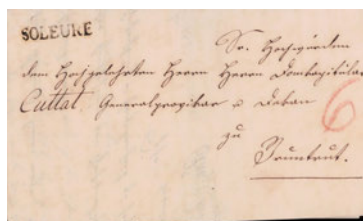 SOLEURE
Sr. Hochwürden
dem Hochgelehrten Herrn Herrn Domkapitular
Cuttat, Generalprovikar u Dekan
6
zu
Pruntrut.